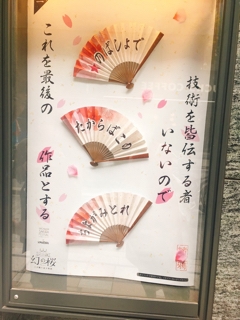 技術を皆伝する者
いないので
のばしよで
たからばこの
これを最後の
作品とする
幻の桜